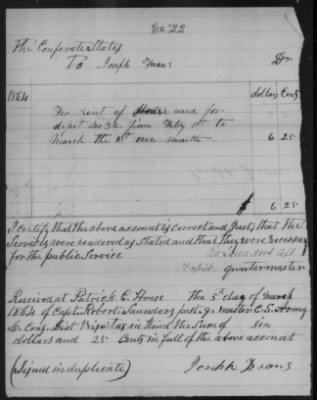 No 22
The Confederate States
To Joseph Evans Dr
dollars Cents
1864
For rent of House used for
depot No 32 from Feby 5th to
March the 5th one month
6 25
6 25
I certify that the above account is correct and just, that the
Services were rendered as Stated and that they were necessary
for the public Service
quartermaster
Received at Patrick C. House the 5th day of March
1864 of Capt Robert Saunders post qr master C.S. Army
6 Cong. Dist Virga tax in Kind the Sum of six
dollars and 25 Cents in full of the above account
(Signed in duplicate) Joseph Evans